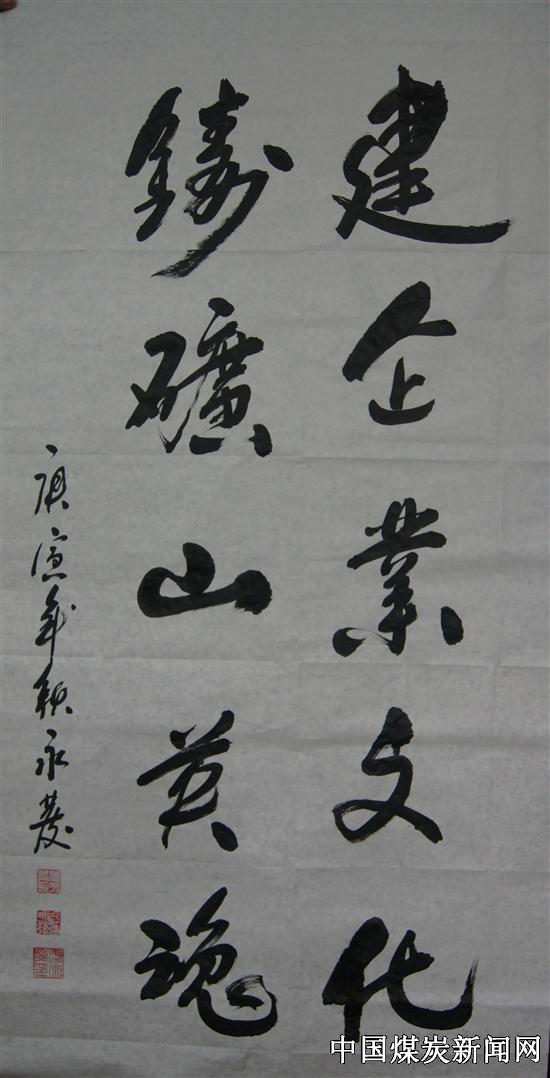 建企業文化
鑄礦山英魂
庚寅年 永慶
中国煤炭新闻网